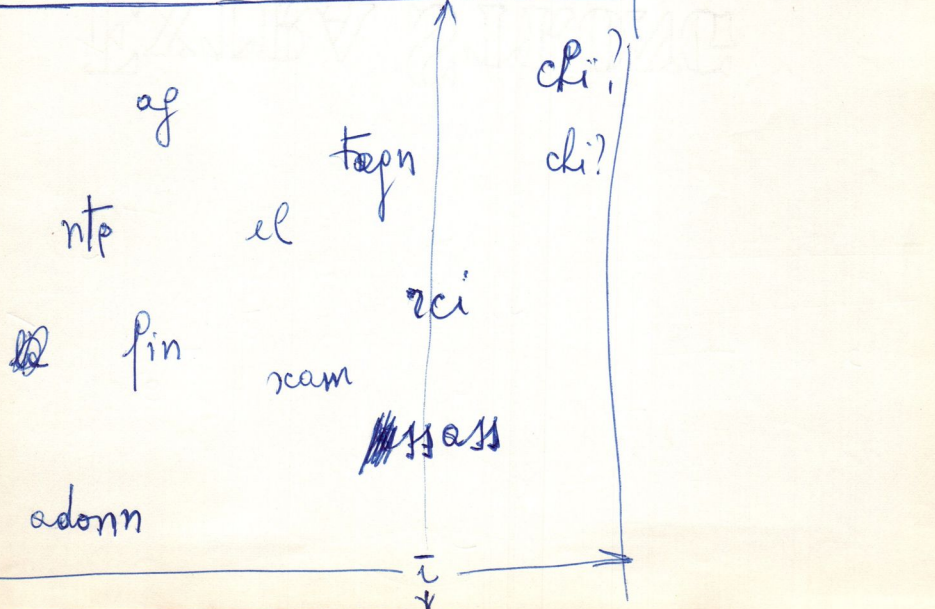 chi?
ag
tagn
chi?
nte
el
rci
fin
xam
ssass
adonn
i